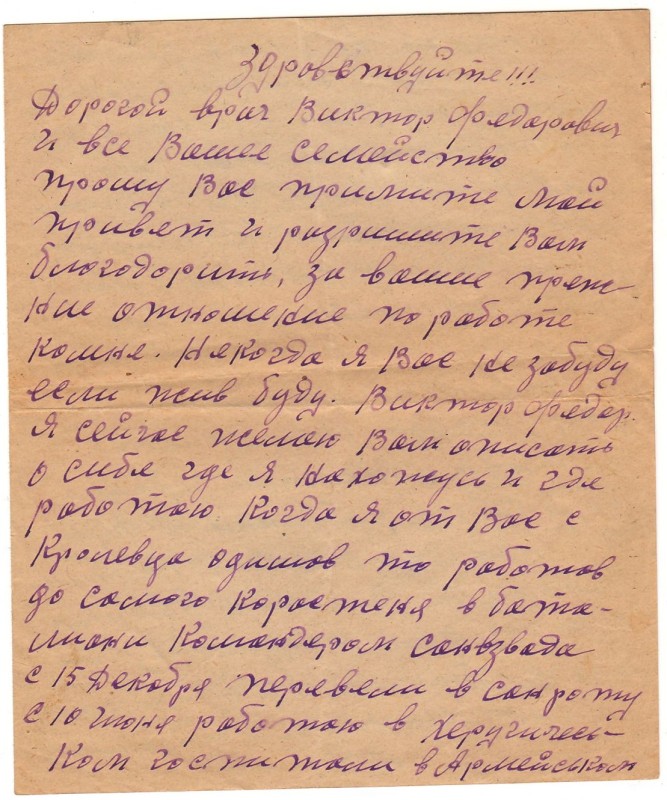 Здровствуйте!!!
Дорогой врач Виктор Федорович
и все Ваше семейство
прошу Вас примите мой
привет и розришите Вам
благодорить, за ваше преж-
ние отношение по работе
комне. Некогда я Вас не забуду
если жив буду. Виктор Федор.
Я сейчас желаю Вам описать
о себе где я нахожусь и где
работаю Когда я от Вас с
Кролевца одишов то работов
до самого Коростеня в бата-
лиони Командером санвзвада
с 15 Декобря перевели в санроту
с 10 июня работаю в херугичес-
ком госпитали в Армейськом